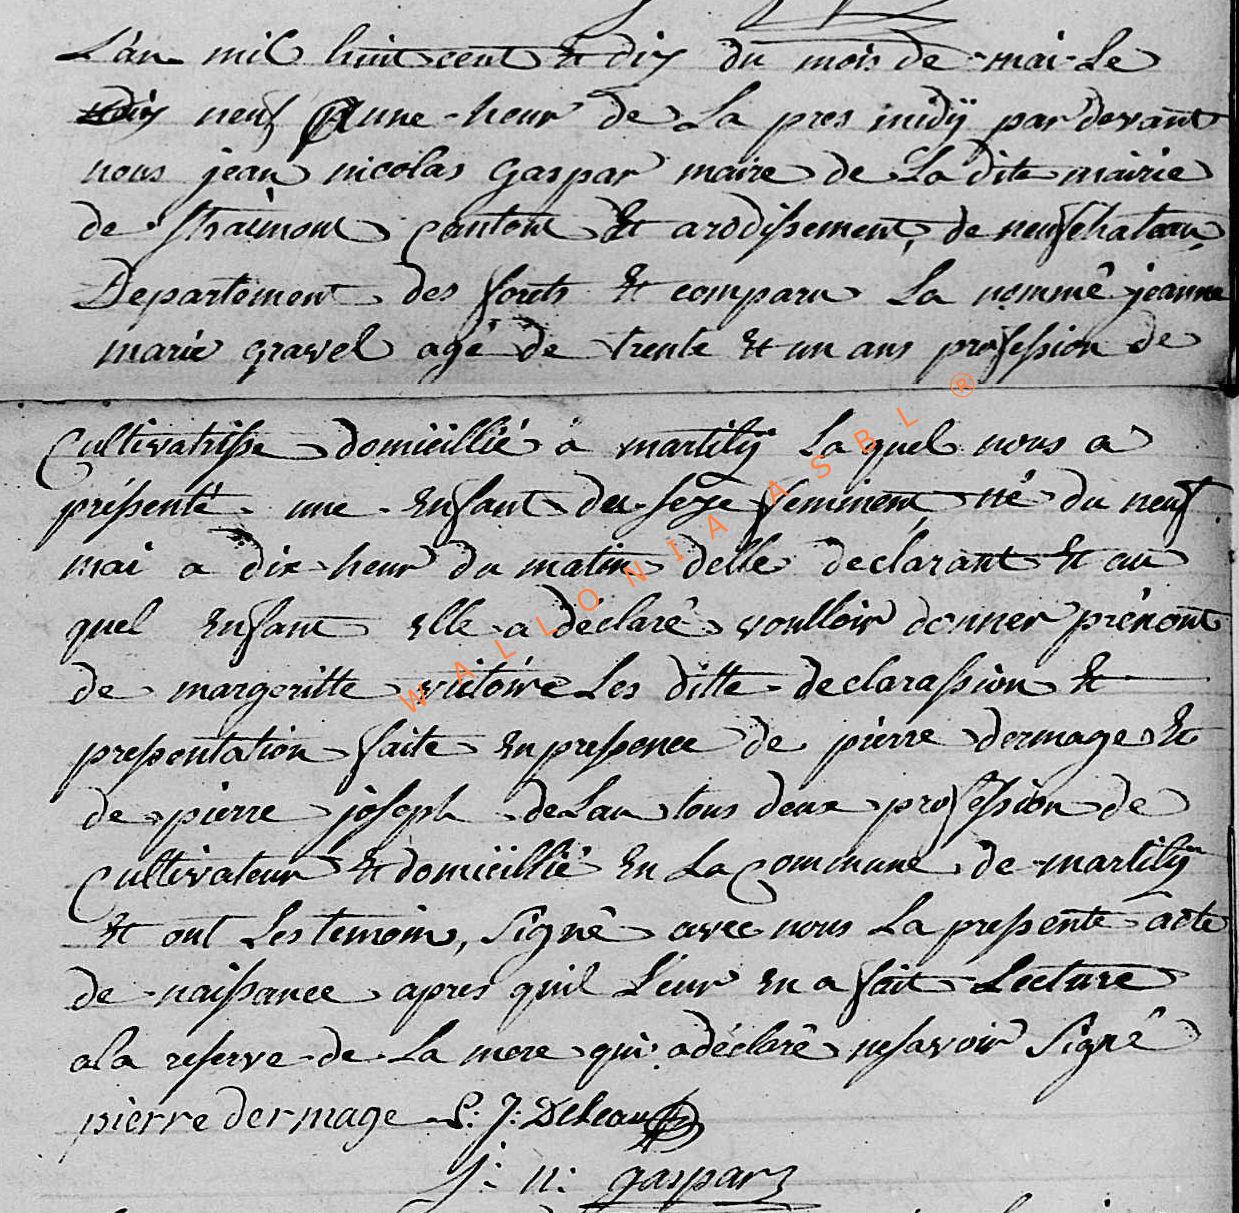 L'an mil huit cent et dix du mois de mai Le
neuf a une heur de La pres midÿ par devant
nous jean nicolas Gaspar maire de La dite mairie
de straimont Canton Et arodissement, de neufchateau,
Departement des forets Et comparu La nommê jeanne
marie gravel agé de trente Et un ans profession de
Cultivatrisse domiçillié a martilÿ La quel nous a
présenté une Enfant du sexe feminent né du neuf
mai a dix heur du matin delle declarant Et au
quel Enfant elle a déclaré voulloir donner prénont
de margeritte victoire Les ditte declarassion Et
pressentation faite En pressence de pierre dermage Et
de pierre joseph deLau tous deux profession de
Cultivateur Et domiçillié En La Commune de martilÿ
Et ont Les temoin, Signê avec nous La pressente acte
de naissance apres quil Leur En a fait Lecture
a la reserve de La mere qui a déclarê ne savoir Signé
pierre dermage P: J: DeLeau
J: n: gaspar
WALLONIA ASBL ®